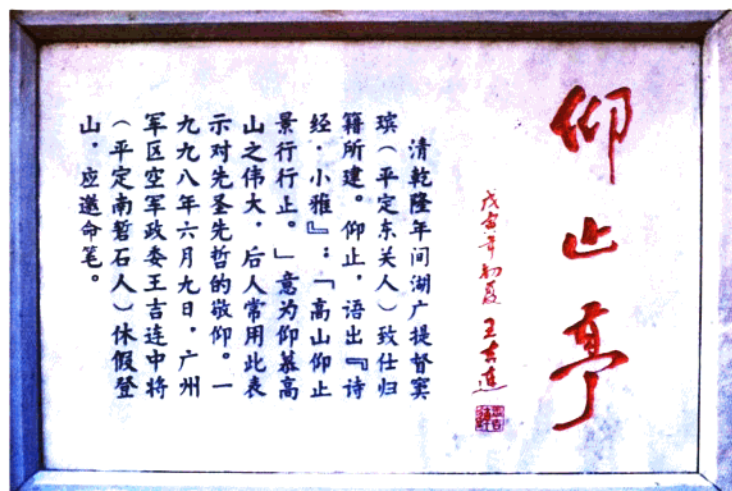 仰止亭
戊寅年初夏 王吉连
清乾隆年间湖广提督窦
瑸（平定东关人）致仕归
籍所建。仰止，语出『诗
经·小雅』：「高山仰止
景行行止。」意为仰慕高
山之伟大，后人常用此表
示对先圣先哲的敬仰。一
九九八年六月九日，广州
军区空军政委王吉连中将
（平定南暂石人）休假登
山，应邀命笔。